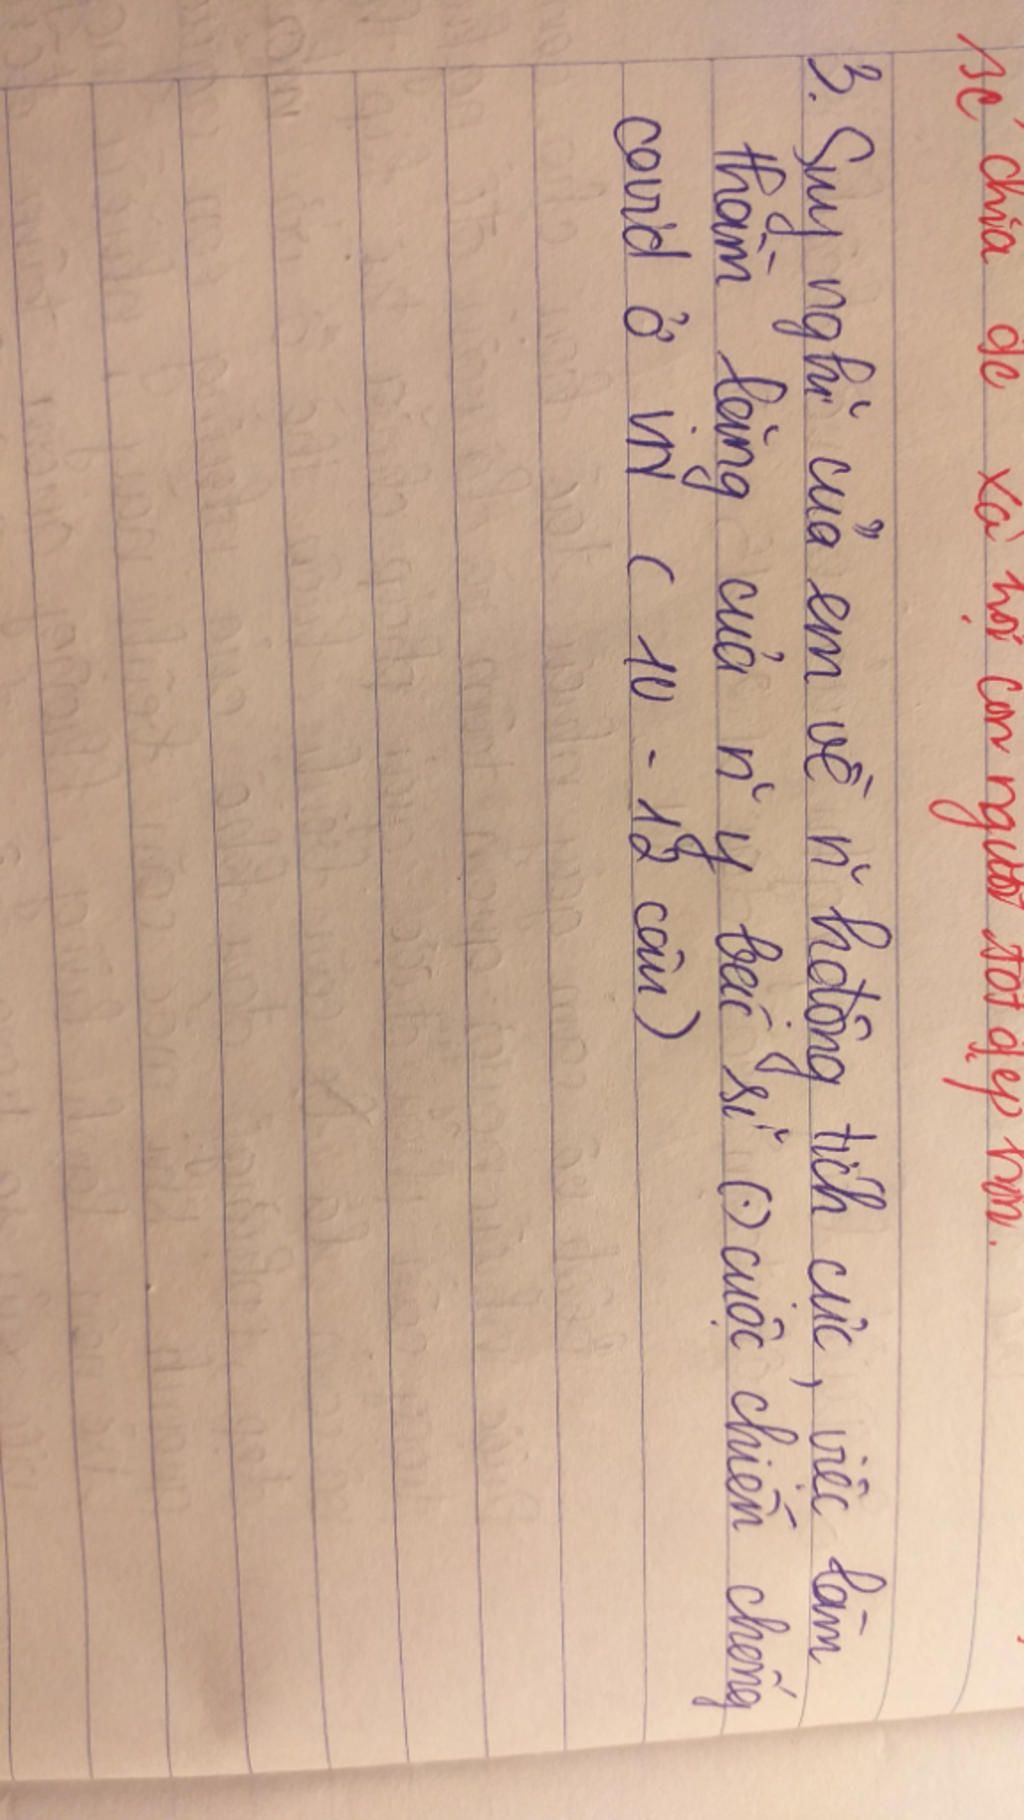 sẻ chia để xã hội con người tốt đẹp hơn.
3. Suy nghĩ của em về n~ hđộng tích cực, việc làm
thầm lặng của n~ y bác sĩ (.) cuộc chiến chống
covid ở VN ( 10 - 12 câu)